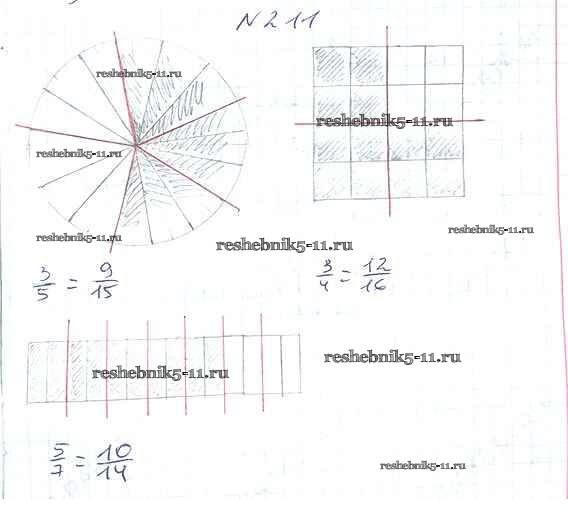 N 211
reshebnik5-11.ru
reshebnik5-11.ru
reshebnik5-11.ru
reshebnik5-11.ru
reshebnik5-11.ru
reshebnik5-11.ru
3/5 = 9/15
3/4 = 12/16
reshebnik5-11.ru
reshebnik5-11.ru
5/7 = 10/14
reshebnik5-11.ru